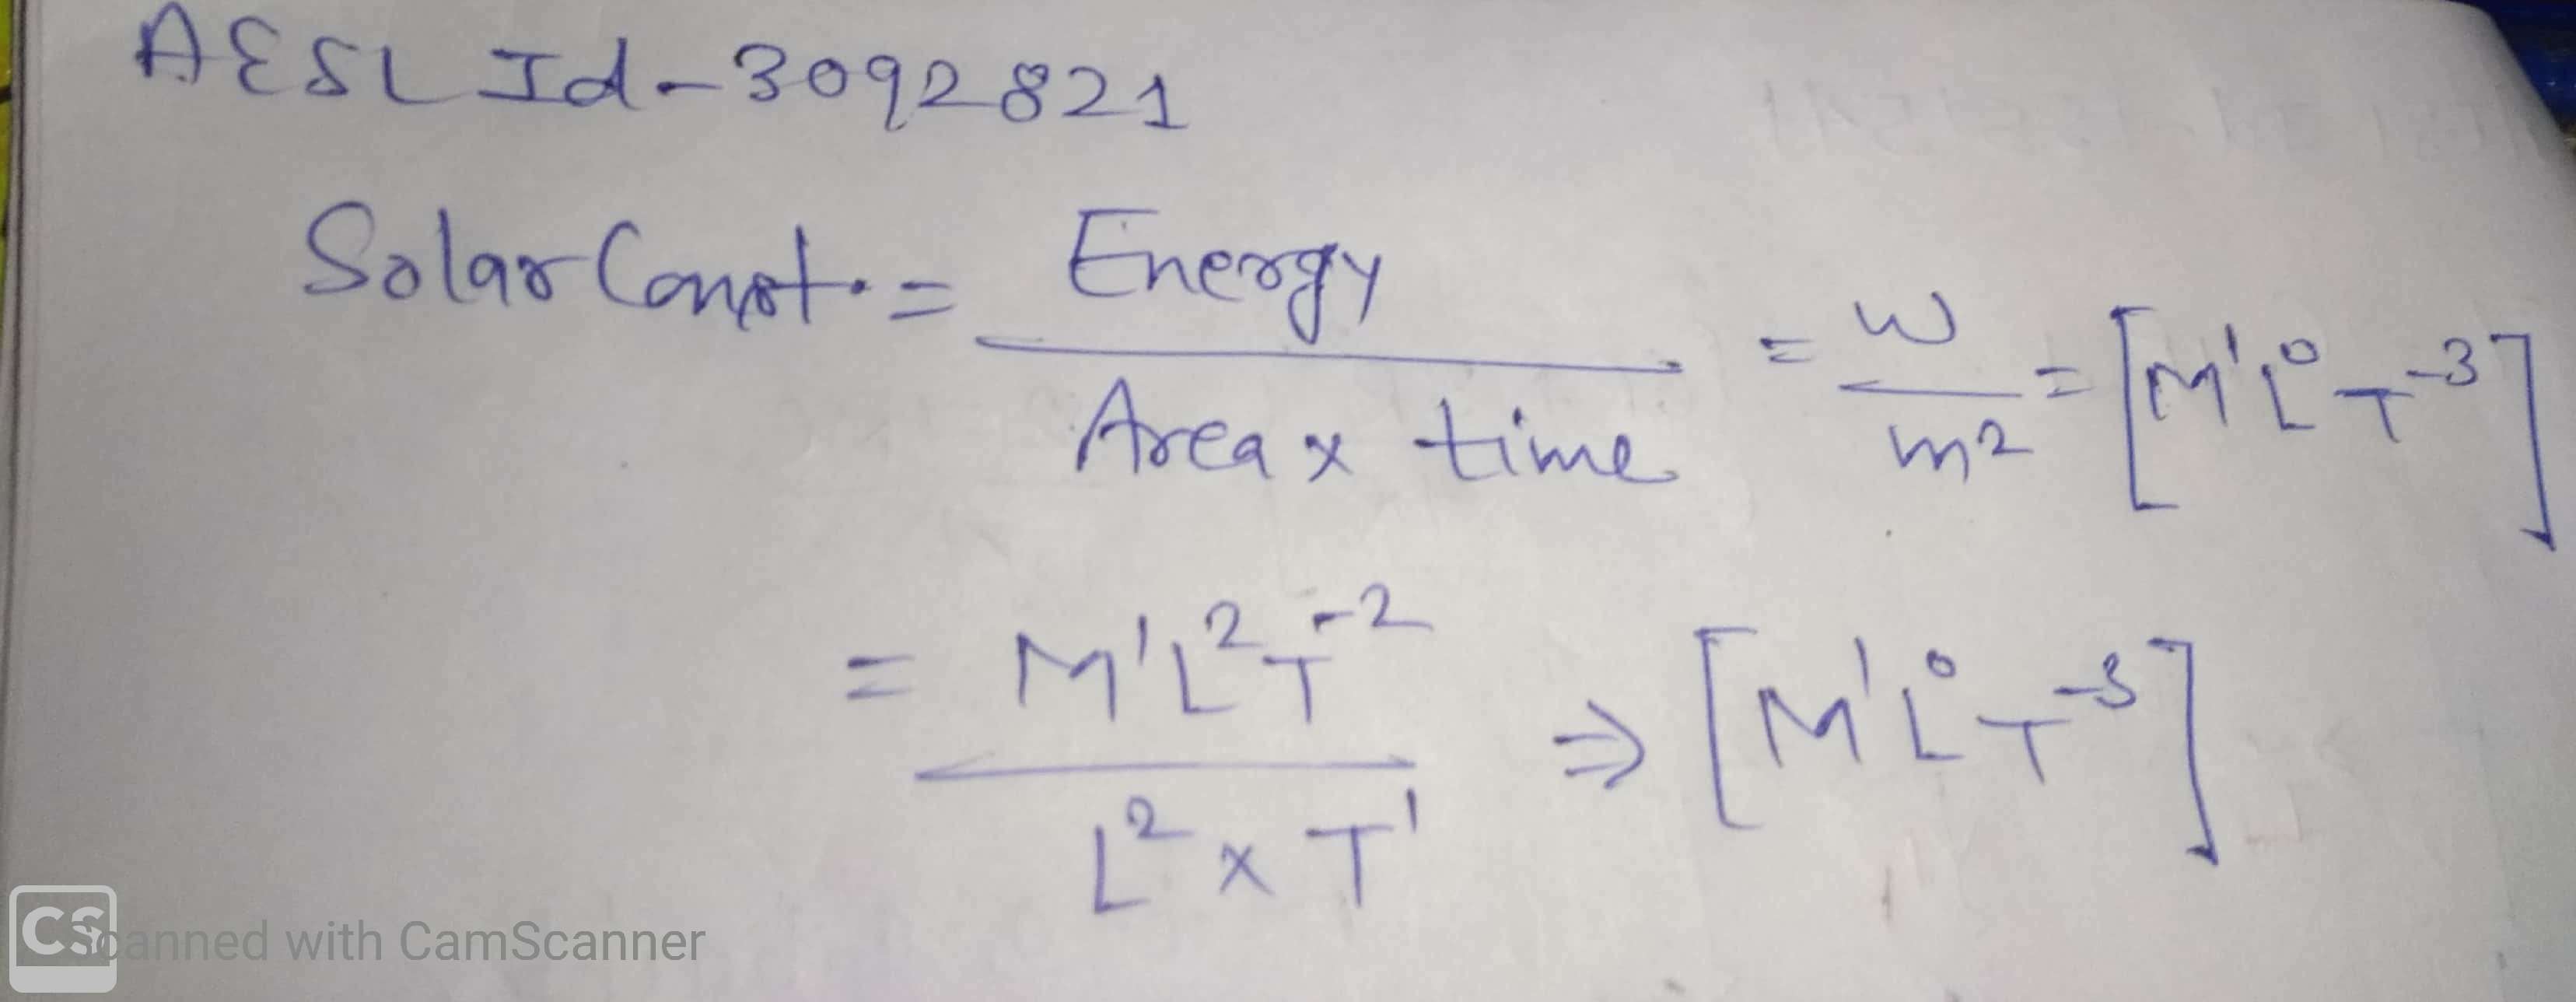 AESL Id-3092821
Solar Const. = Energy / Area x time = w / m² = [M¹L⁰T⁻³]
= M¹L²T⁻² / L² x T¹ ⇒ [M¹L⁰T⁻³]
CS Scanned with CamScanner